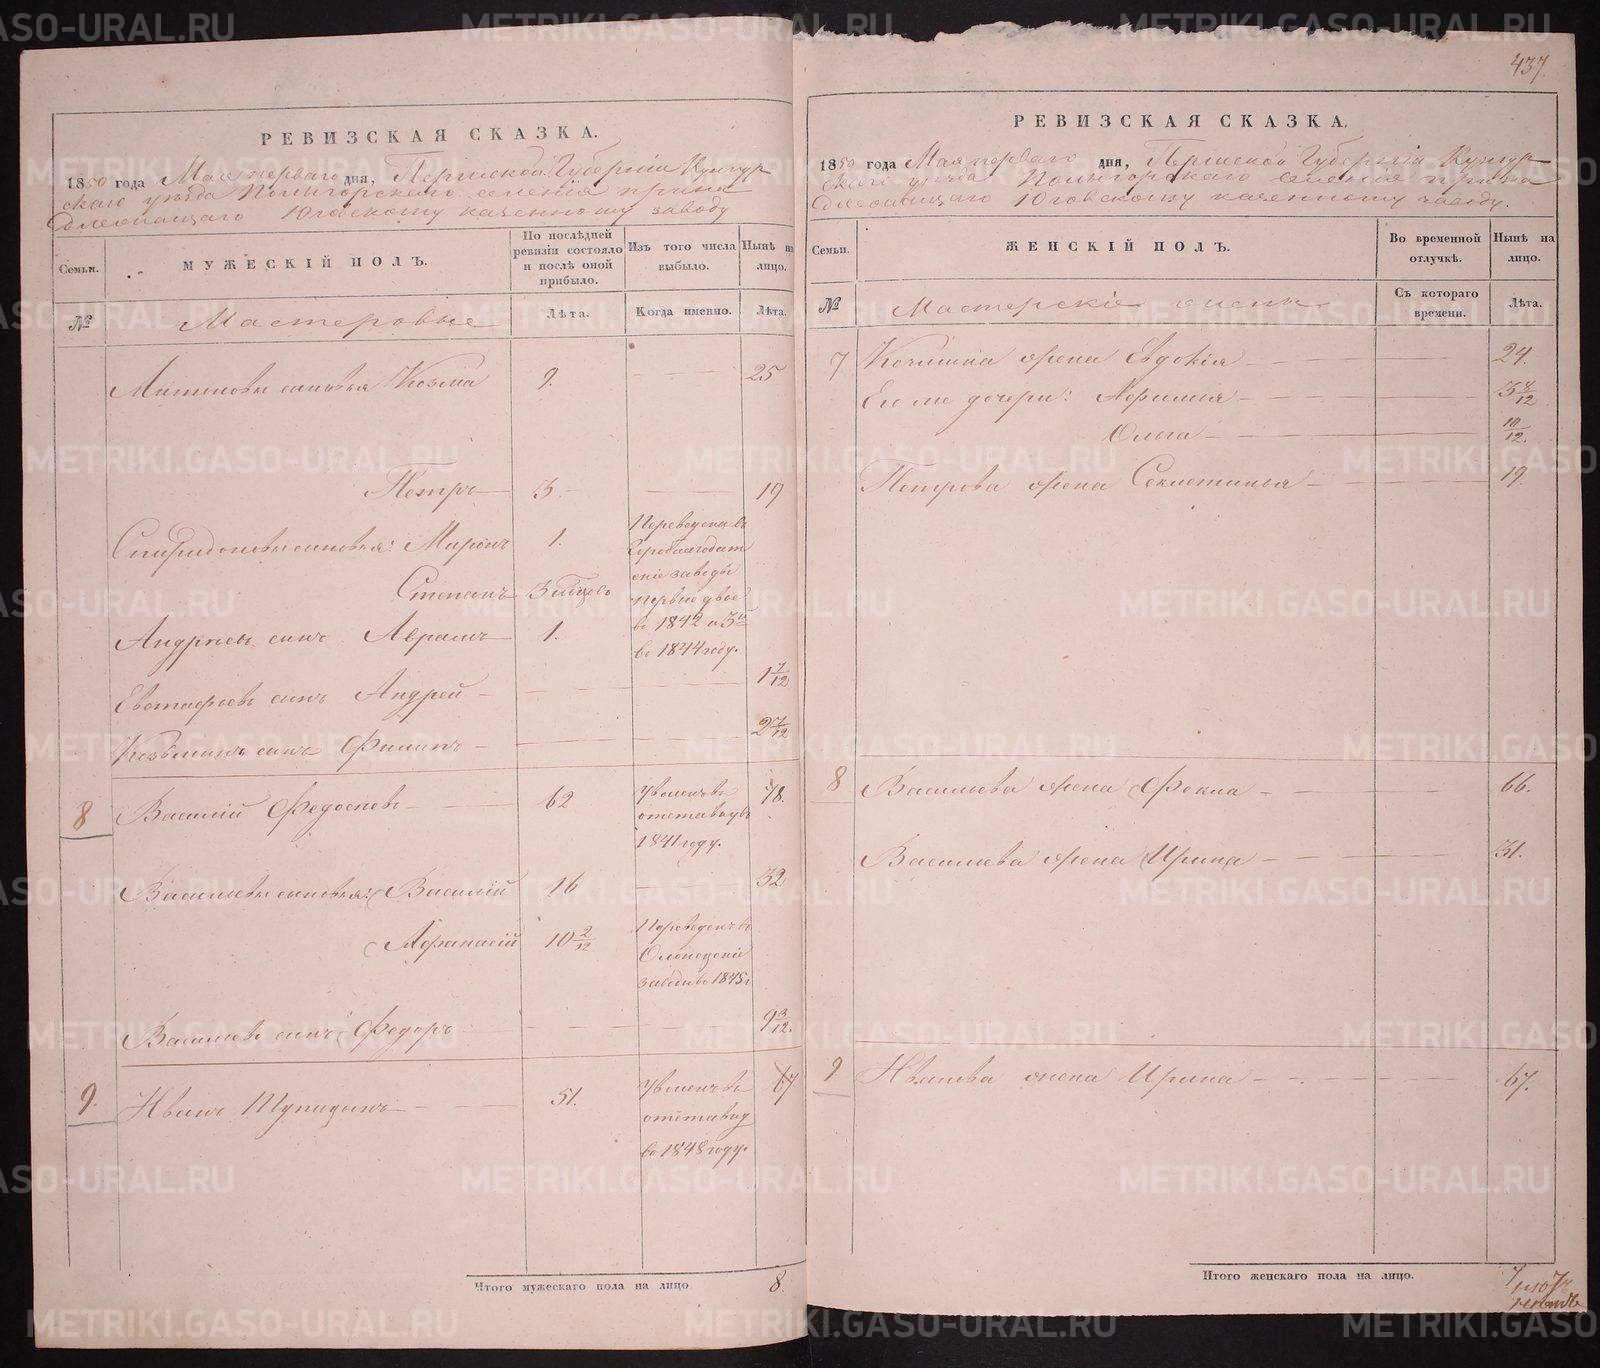 РЕВИЗСКАЯ СКАЗКА.
1850 года Мая перваго дня, Пермской Губернiи Кунгур
скаго уѣзда селенiя прина
длежащаго Юговскому казенному заводу
Семьи.
МУЖЕСКIЙ ПОЛЪ.
По послѣдней ревизiи состояло и послѣ оной прибыло.
Изъ того числа выбыло.
Нынѣ на лицо.
№
Мастеровые
Лѣта.
Когда именно.
Лѣта.
сыновья Козма 9. 25
Петръ 3. 19
Спиридоновы сыновья: Миронъ 1.
Переведены въ
Гороблагодат
скiе заводы
первые двое
въ 1842 и 3й
въ 1844 году.
Степанъ
Андреевъ сынъ Аврамъ 1.
Евстафьевъ сынъ Андрей 1 7/12
Козьминъ сынъ Филипъ 2 7/12
8 Василiй Федосѣевъ 62 78.
Уволенъ въ
отставку въ
1841 году.
Васильевы сыновья: Василiй 16 32
Афанасiй 10 2/12
Переведенъ въ
Олонецкiе
заводы въ 1845 г
Васильевъ сынъ Федоръ 9 3/12.
9. Иванъ 51. 67
Уволенъ въ
отставку
въ 1848 году.
Итого мужескаго пола на лицо 8.
437
РЕВИЗСКАЯ СКАЗКА.
1850 года Мая перваго дня, Пермской Губернiи Кунгур
скаго уѣзда селенiя прина
длежащаго Юговскому казенному заводу.
Семьи.
ЖЕНСКIЙ ПОЛЪ.
Во временной отлучкѣ.
Нынѣ на лицо.
№
Мастерскiе жены
Съ котораго времени.
Лѣта.
7 Козмина жена Евдокiя 24.
Ея же дочери: Афимья 3 8/12
Ольга 10/12.
Петрова жена Секлетинья 19.
8 Васильева жена Фекла 66.
Васильева жена Ирина 31.
9 Иванова жена Ирина 67.
Итого женскаго пола на лицо. 7
METRIKI.GASO-URAL.RU